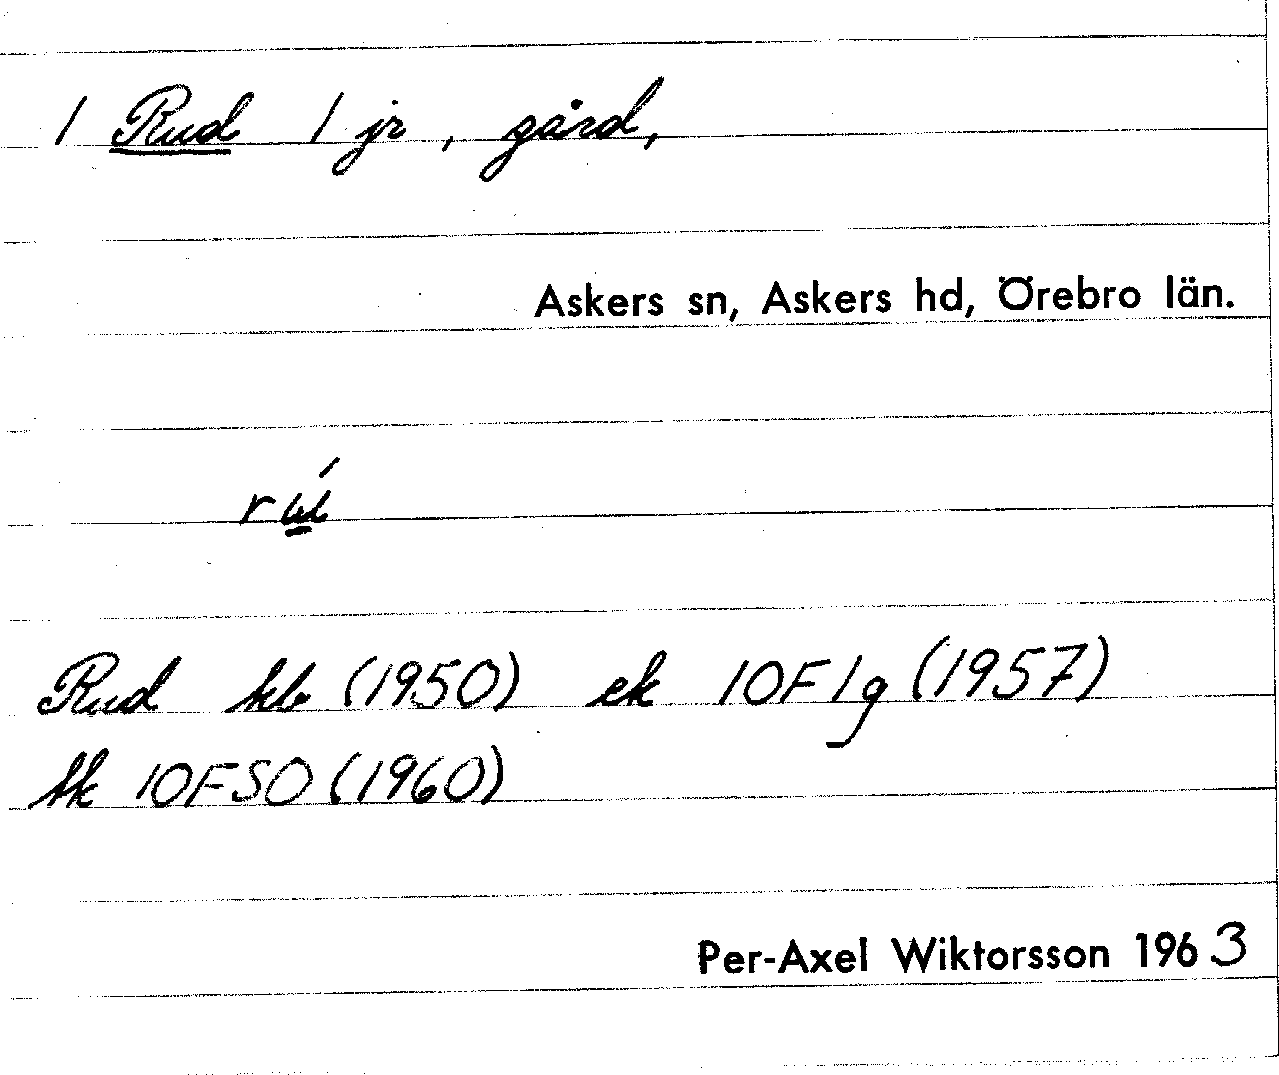 1 Rud 1 jr, gård,
Askers sn, Askers hd, Örebro län.
Rud kb (1950) ek 10F1g (1957)
tk 10FSO (1960)
Per-Axel Wiktorsson 1963